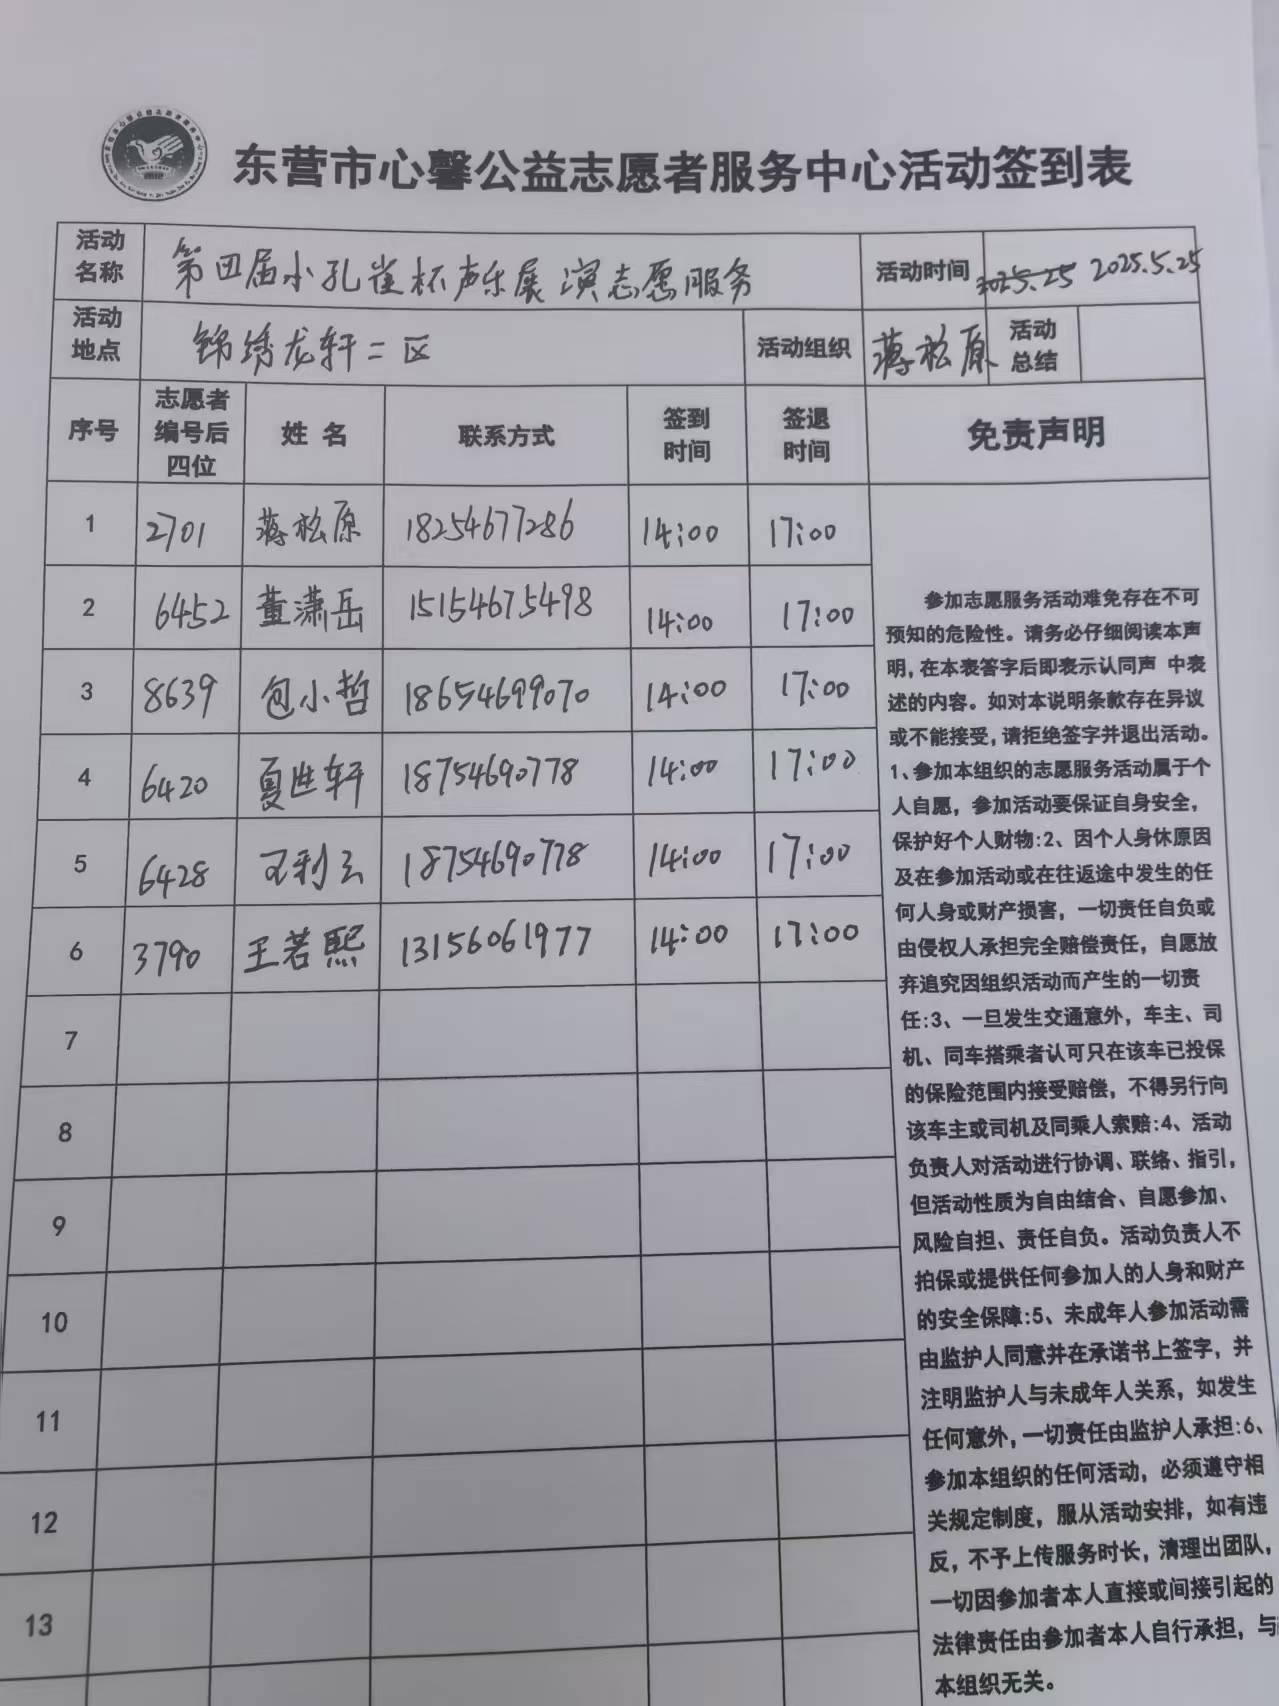 东营市心馨公益志愿者服务中心活动签到表
活动名称 第四届小孔雀杯声乐展演志愿服务 活动时间 2025.5.25
活动地点 锦绣龙轩二区 活动组织 蒋松原 活动总结
序号 志愿者编号后四位 姓名 联系方式 签到时间 签退时间 免责声明
1 2701 蒋松原 18254677286 14:00 17:00
2 6452 董潇岳 15154675498 14:00 17:00
3 8639 包小哲 18654699070 14:00 17:00
4 6420 夏进轩 18754690778 14:00 17:00
5 6428 王利云 18754690778 14:00 17:00
6 3790 王若熙 13156061977 14:00 17:00
7
8
9
10
11
12
13
参加志愿服务活动难免存在不可
预知的危险性。请务必仔细阅读本声
明,在本表答字后即表示认同声 中表
述的内容。如对本说明条款存在异议
或不能接受,请拒绝签字并退出活动。
1、参加本组织的志愿服务活动属于个
人自愿，参加活动要保证自身安全，
保护好个人财物:2、因个人身休原因
及在参加活动或在往返途中发生的任
何人身或财产损害，一切责任自负或
由侵权人承担完全赔偿责任，自愿放
弃追究因组织活动而产生的一切责
任:3、一旦发生交通意外，车主、司
机、同车搭乘者认可只在该车已投保
的保险范围内接受赔偿，不得另行向
该车主或司机及同乘人索赔:4、活动
负责人对活动进行协调、联络、指引，
但活动性质为自由结合、自愿参加、
风险自担、责任自负。活动负责人不
拍保或提供任何参加人的人身和财产
的安全保障:5、未成年人参加活动需
由监护人同意并在承诺书上签字，并
注明监护人与未成年人关系，如发生
任何意外,一切责任由监护人承担:6、
参加本组织的任何活动，必须遵守相
关规定制度，服从活动安排，如有违
反，不予上传服务时长，清理出团队，
一切因参加者本人直接或间接引起的
法律责任由参加者本人自行承担，与
本组织无关。